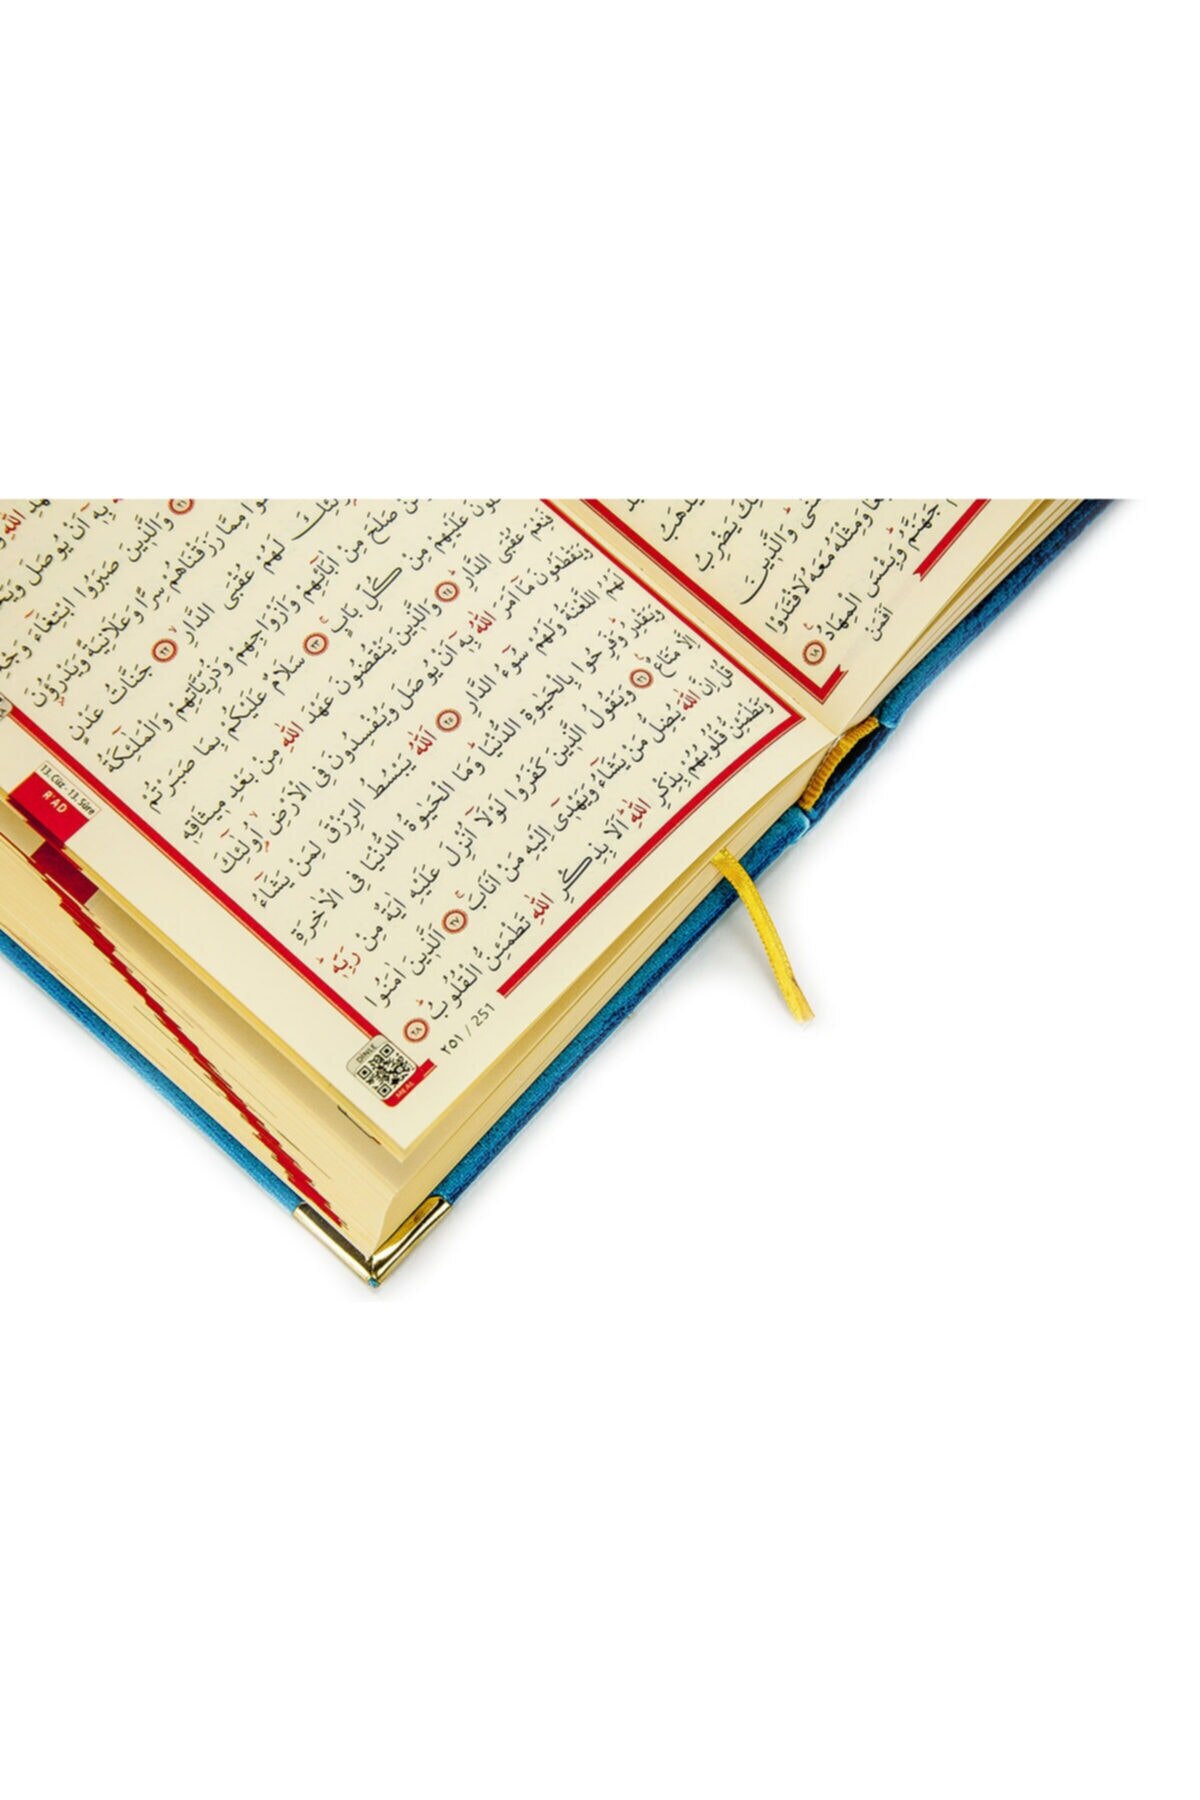 بِهٓ اَنْ يُوصَلَ
وَالَّذٖينَ صَبَرُوا ابْتِغَٓاءَ
مِمَّا رَزَقْنَاهُمْ سِرًّا وَعَلَانِيَةً وَيَدْرَؤُنَ
لَهُمْ عُقْبَى الدَّارِ ٢٢ جَنَّاتُ عَدْنٍ
صَلَحَ مِنْ اٰبَٓائِهِمْ وَاَزْوَاجِهِمْ وَذُرِّيَّاتِهِمْ وَالْمَلٰٓئِكَةُ
عَلَيْهِمْ مِنْ كُلِّ بَابٍ ٢٣ سَلَامٌ عَلَيْكُمْ بِمَا صَبَرْتُمْ
فَنِعْمَ عُقْبَى الدَّارِ ٢٤ وَالَّذٖينَ يَنْقُضُونَ عَهْدَ اللّٰهِ مِنْ بَعْدِ مٖيثَاقِهٖ
وَيَقْطَعُونَ مَٓا اَمَرَ اللّٰهُ بِهٖٓ اَنْ يُوصَلَ وَيُفْسِدُونَ فِى الْاَرْضِ اُولٰٓئِكَ
لَهُمُ اللَّعْنَةُ وَلَهُمْ سُٓوءُ الدَّارِ ٢٥ اَللّٰهُ يَبْسُطُ الرِّزْقَ لِمَنْ يَشَٓاءُ
وَيَقْدِرُ وَفَرِحُوا بِالْحَيٰوةِ الدُّنْيَا وَمَا الْحَيٰوةُ الدُّنْيَا فِى الْاٰخِرَةِ
اِلَّا مَتَاعٌ ٢٦ وَيَقُولُ الَّذٖينَ كَفَرُوا لَوْلَٓا اُنْزِلَ عَلَيْهِ اٰيَةٌ مِنْ رَبِّهٖ
قُلْ اِنَّ اللّٰهَ يُضِلُّ مَنْ يَشَٓاءُ وَيَهْدٖٓى اِلَيْهِ مَنْ اَنَابَ ٢٧ اَلَّذٖينَ اٰمَنُوا
وَتَطْمَئِنُّ قُلُوبُهُمْ بِذِكْرِ اللّٰهِ اَلَا بِذِكْرِ اللّٰهِ تَطْمَئِنُّ الْقُلُوبُ ٢٨
٢٥١ / 251
13. Cüz - 13. Sûre
R'AD
DİNLE
وَالَّذٖينَ
وَمِثْلَهُ مَعَهُ لَافْتَدَوْا
جَهَنَّمُ وَبِئْسَ الْمِهَادُ ١٨
اَفَمَنْ